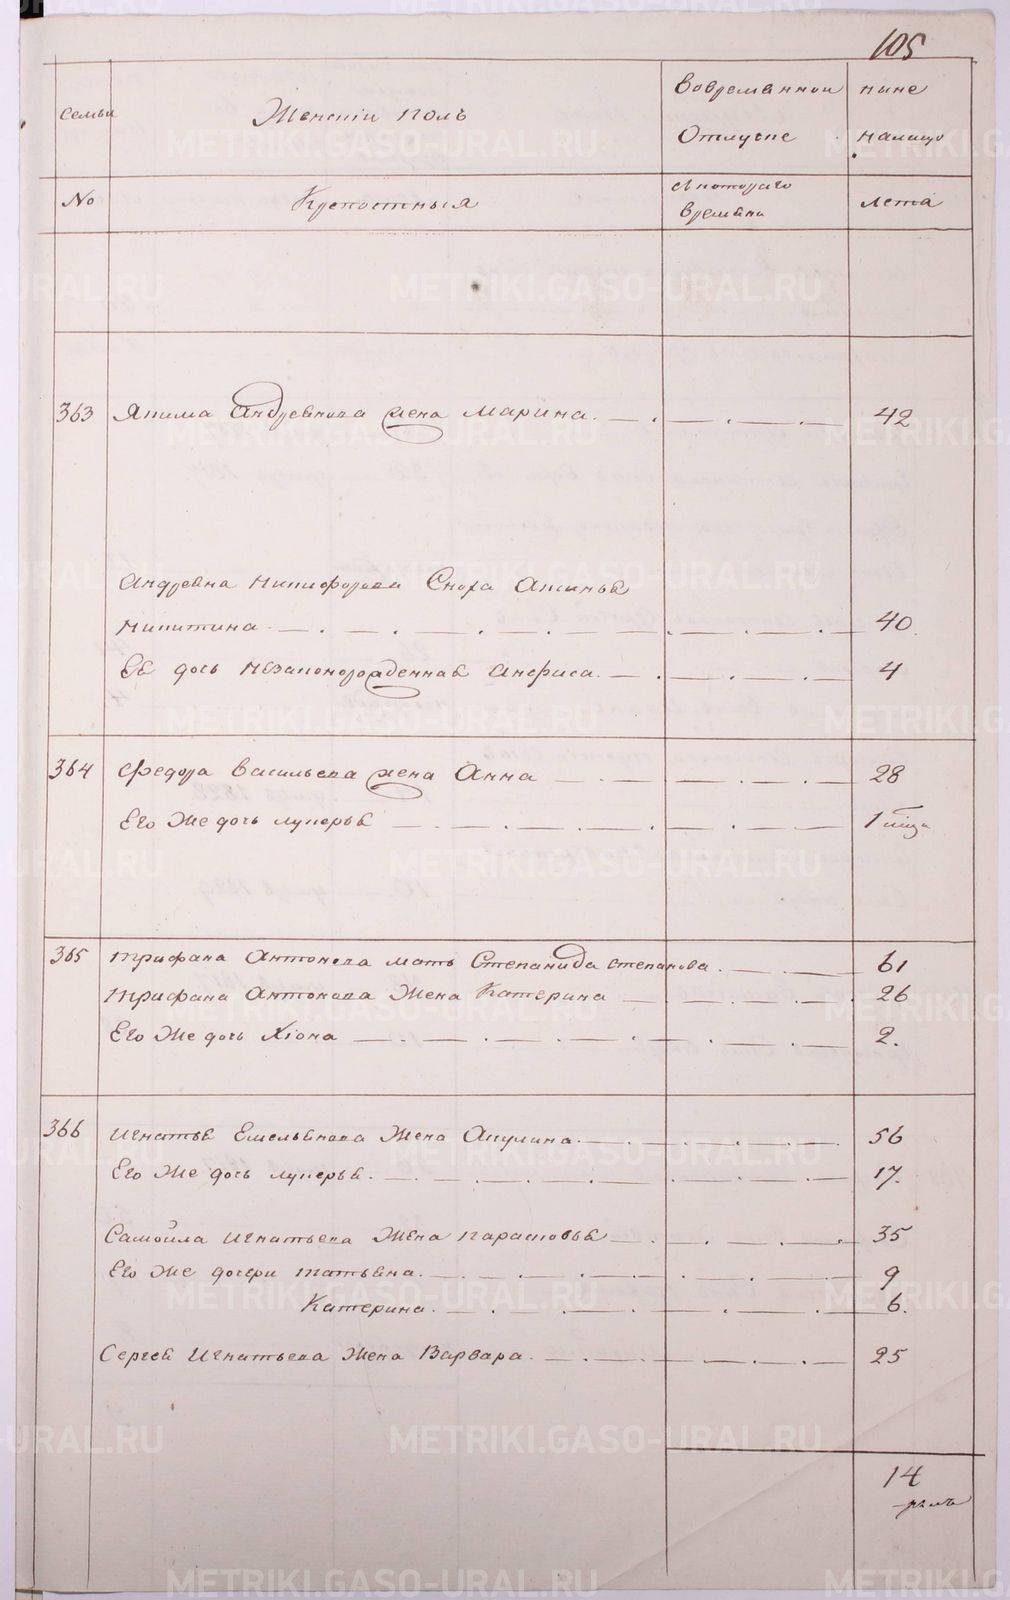 105
Семьи
Женскiй полъ
Вовременной
Отлучке
ныне
налицо
No
Крепостныя
Съ котораго
Времени
Лета
363 Якима Андреянова жена Марина. 42
Андреяна Никифорова Сноха Аксинья
Никитина 40
Ея дочь незаконорожденная Анфиса. 4
364 Федора Васильева жена Анна 28
Его же дочь Лукерья 1 мца
365 Трифана Антонова мать Степанида Степанова. 61
Трифана Антонова Жена Катерина 26
Его же дочь Хiона 2.
366 Игнатья Емельянова Жена Акулина. 56
Его же дочь Лукерья. 17.
Самойла Игнатьева Жена Парасковья 35
Его же дочери Татьяна. 9
Катерина. 6.
Сергея Игнатьева Жена Варвара. 25
14
METRIKI.GASO-URAL.RU